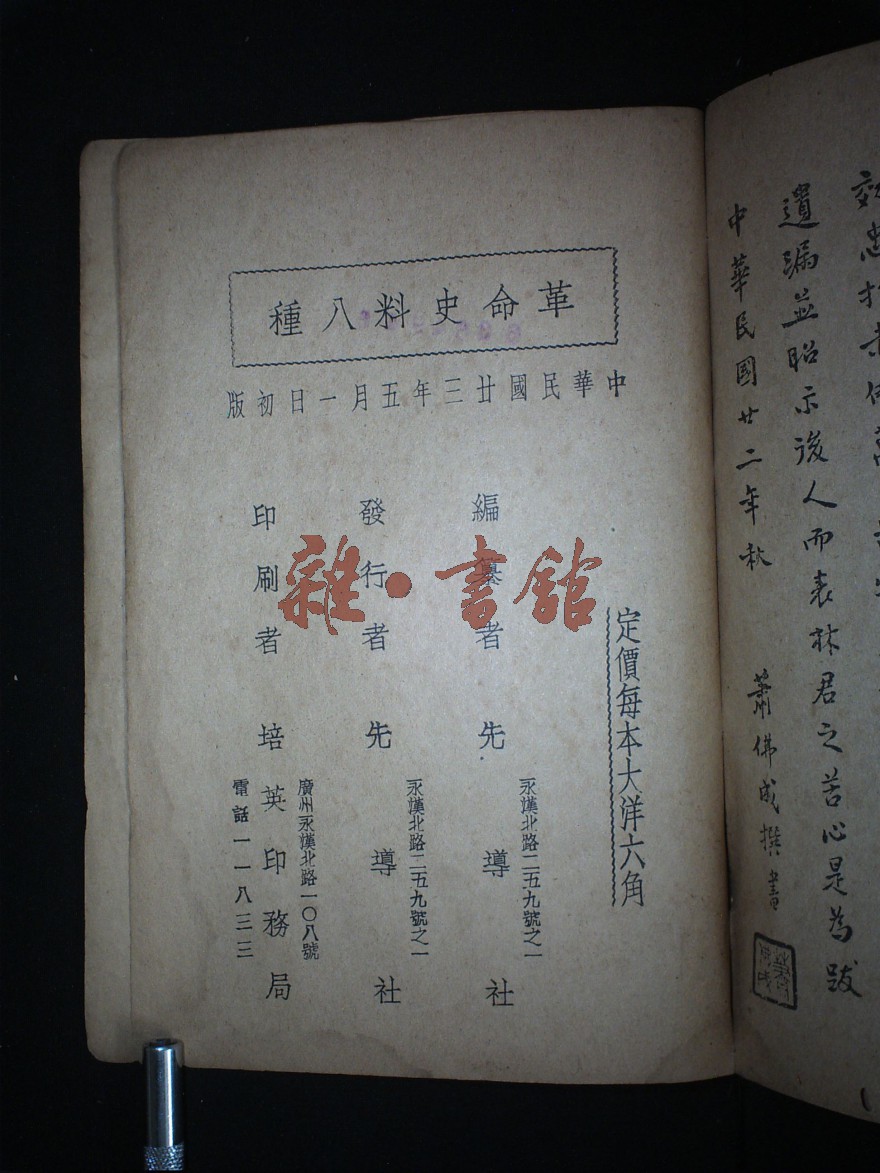 革命史料八種
中華民國廿三年五月一日初版
定價每本大洋六角
編纂者 先導社
永漢北路二五九號之一
發行者 先導社
永漢北路二五九號之一
印刷者 培英印務局
廣州永漢北路一〇八號
電話一一八三三
雜·書館
遺漏並昭示後人而表林君之苦心是為跋
中華民國廿二年秋 蕭佛成撰書